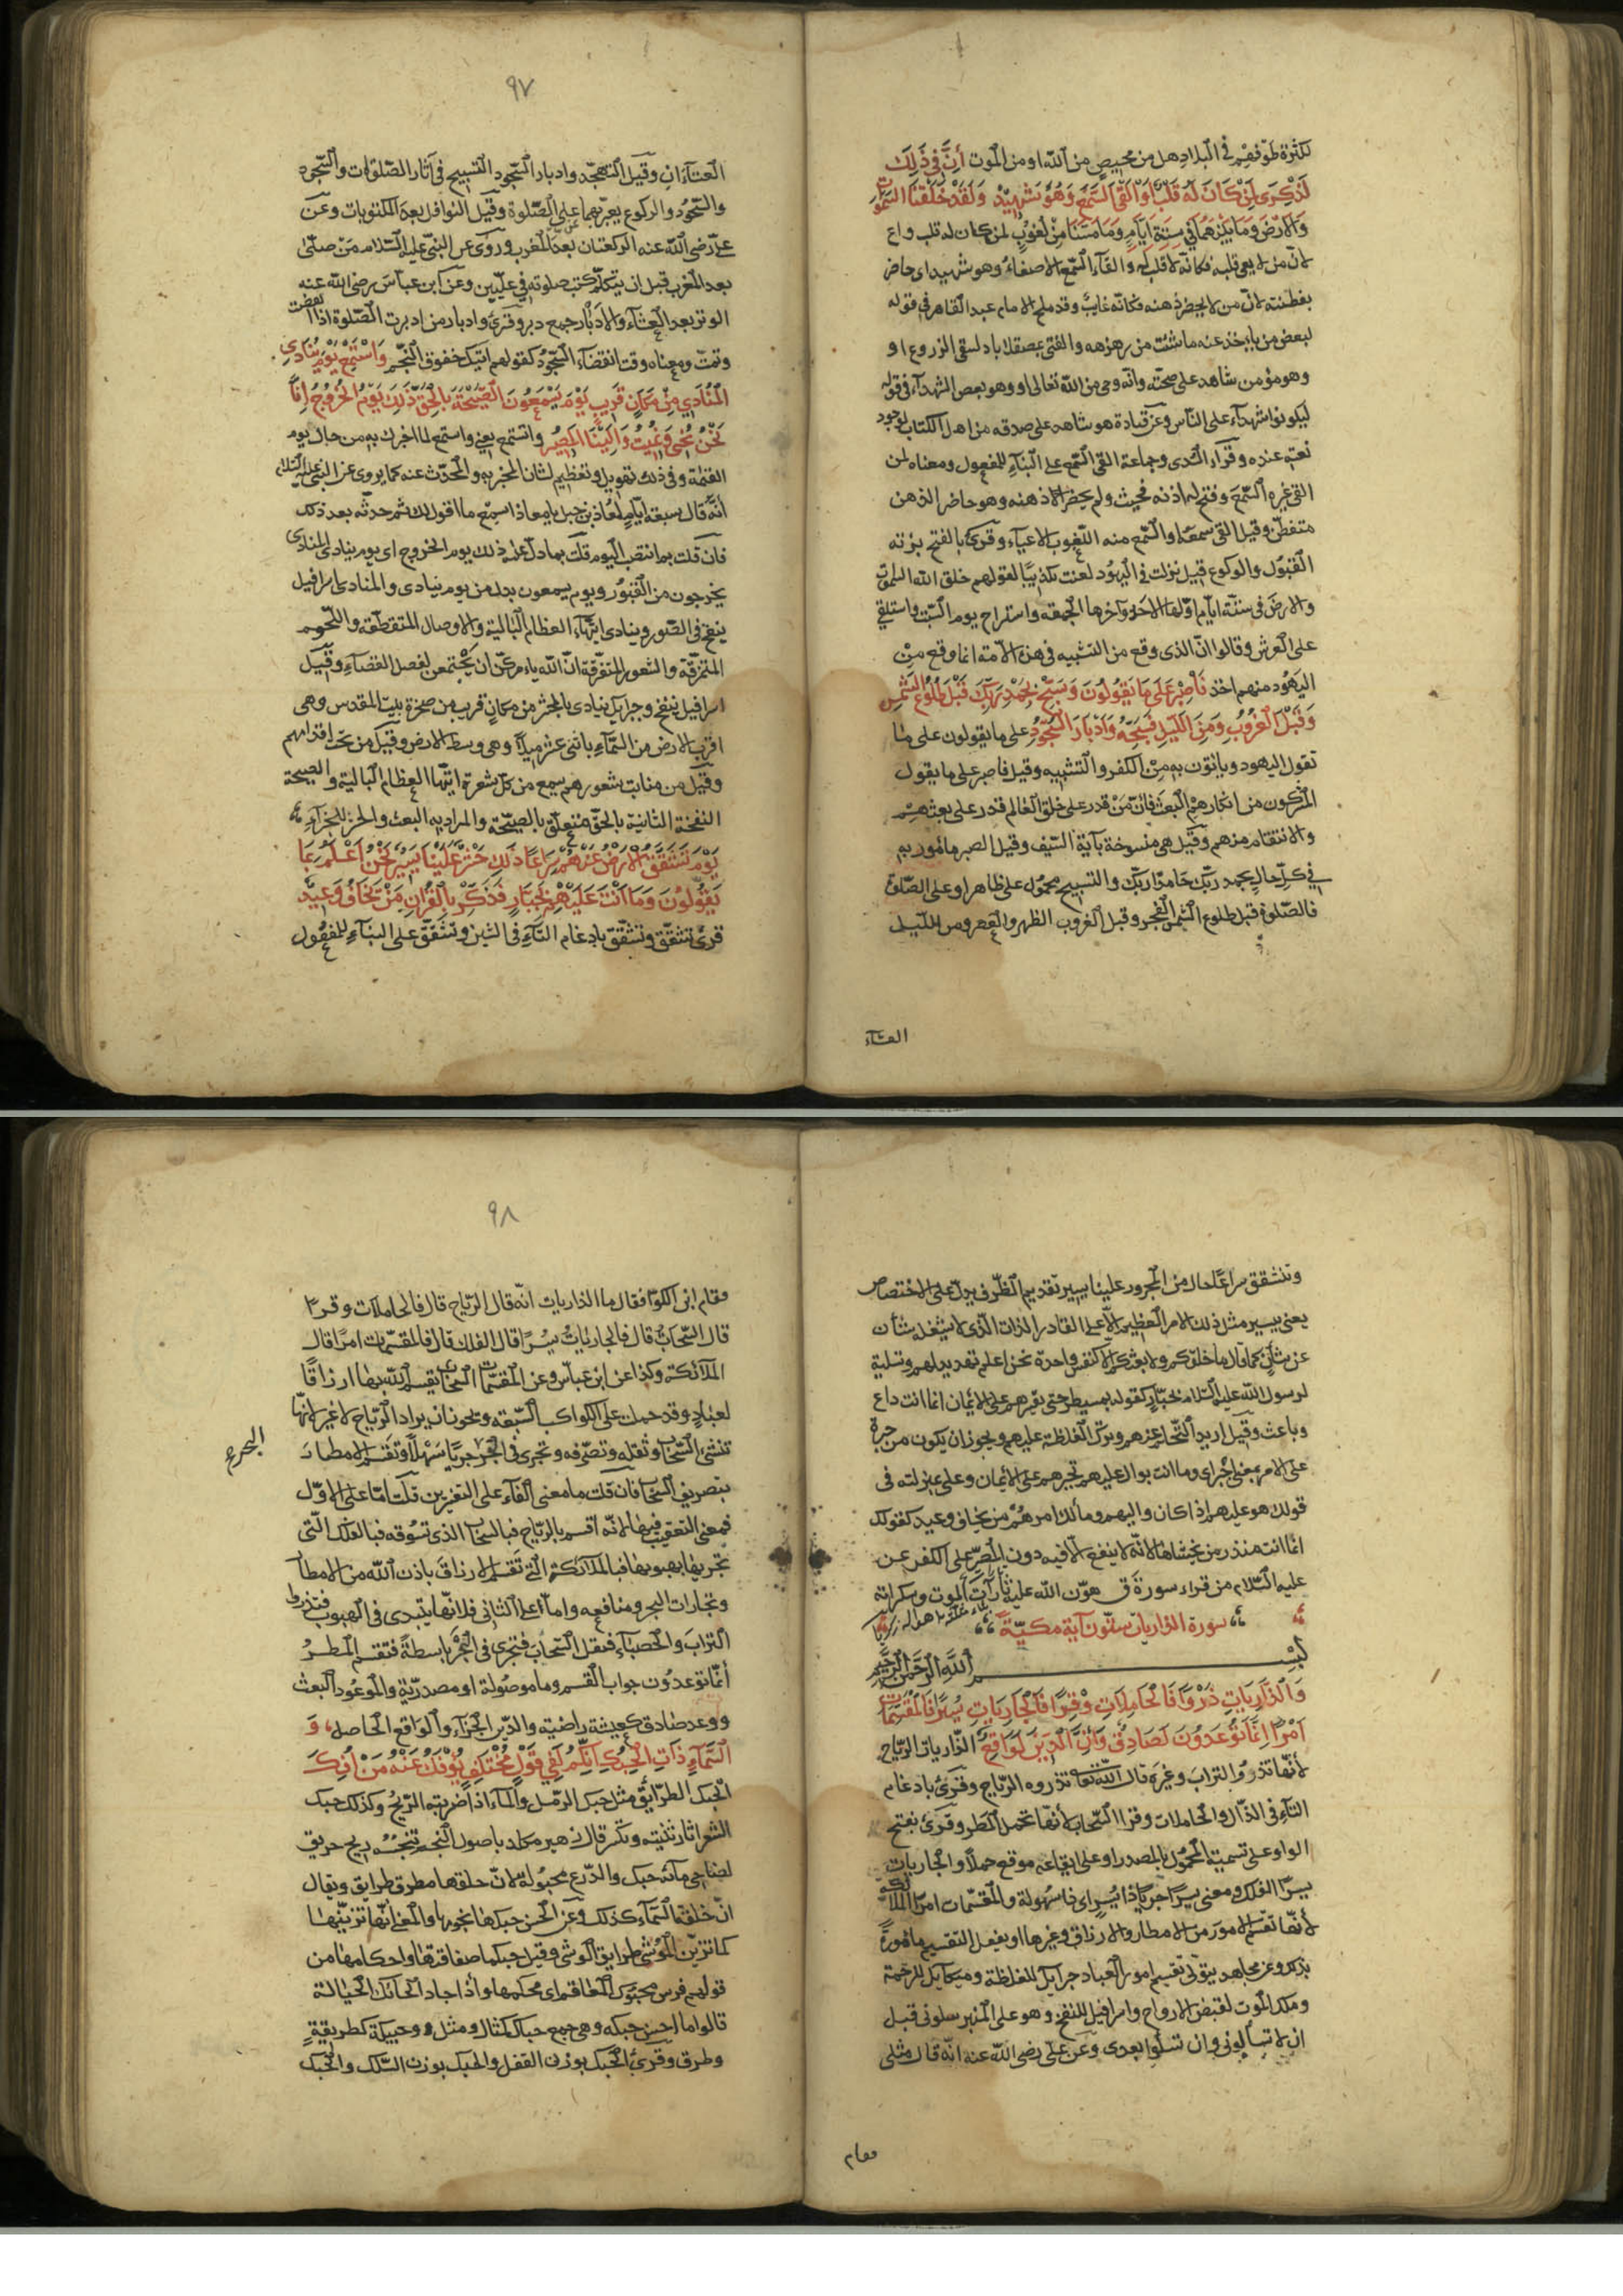 لكثرة طوفهم في البلاد هل من محيص من الله او من الموت إِنَّ فِي ذَلِكَ
لَذِكْرَى لِمَنْ كَانَ لَهُ قَلْبٌ اَوْ اَلْقَى السَّمْعَ وَهُوَ شَهِيدٌ وَلَقَدْ خَلَقْنَا السَّمٰوَاتِ
وَالْاَرْضَ وَمَا بَيْنَهُمَا فِي سِتَّةِ اَيَّامٍ وَمَا مَسَّنَا مِنْ لُغُوبٍ لمن كان له قلب واع
لانّ من لا يعي قلبه فكانّه لا قلب له والقآء السّمع الاصغاء وهو شهيد اى حاضر
بفطنته لانّ من لا يحضر ذهنه فكانّه غايب وقد ملح الامام عبد القاهر في قوله
لبعض من ياخذ عنه ما شئت من زهزهه والفتى بمصقلاباد لسقى الزروع او
وهو مؤمن شاهد على صحّته وانّه وحى من الله تعالى او وهو بعض الشهدآء في قوله
ليكونوا شهدآء على النّاس وعن قتادة هو شاهد على صدقه من اهل الكتاب لوجود
نعته عنده وقرآء السّدى وجماعة القى السّمع على البناء للمفعول ومعناه لمن
القى غيره السّمع وفتح له اذنه فحيث ولم يحضر الا ذهنه وهو حاضر الذهن
متفطّن وقيل القى سمعه او السّمع منه اللّغوب الاعياء وقرئ بالفتح بزنة
القبول والولوع قيل نزلت في اليهود لعنت تكذيبًا لقولهم خلق الله السموات
والارض في ستّة ايّام اوّلها الاحد وآخرها الجمعه واستراح يوم السّبت واستلقى
على العرش وقالوا انّ الذى وقع من التشبيه في هذه الامّة انما وقع من
اليهود ومنهم اخذ فَاصْبِرْ عَلَى مَا يَقُولُونَ وَسَبِّحْ بِحَمْدِ رَبِّكَ قَبْلَ طُلُوعِ الشَّمْسِ
وَقَبْلَ الْغُرُوبِ وَمِنَ اللَّيْلِ فَسَبِّحْهُ وَاَدْبَارَ السُّجُودِ على ما يقولون على ما
تقول اليهود ويأتون به من الكفر والتشبيه وقيل فاصبر على ما يقول
المشركون من انكارهم البعث فانّ من قدر على خلق العالم قدر على بعثهم
والانتقام منهم وقيل هى منسوخة بآية السّيف وقيل الصبر مأمور به
في كلّ حال بحمد ربّك حامدًا ربّك والتسبيح محمول على ظاهره او على الصّلوة
فالصّلوة قبل طلوع الشمس الفجر وقبل الغروب الظهر والعصر ومن اللّيل
العشآء
٩٧
العشآءان وقيل التهجّد وادبار السّجود التسبيح في آثار الصّلوات والسّجود
والسّجود والركوع يعبّر بهما على الصّلوة وقيل النوافل بعد المكتوبات وعن
علىّ رضى الله عنه الركعتان بعد المغرب وروى عن النبىّ عليه السّلام من صلّى
بعد المغرب قبل ان يتكلّم كتب صلوته في علّيّين وعن ابن عباس رضى الله عنه
الوتر بعد العشآء والادبار جمع دبر وقرئ وادبار من ادبرت الصّلوة اذا انقضت
وتمّت ومعناه وقت انقضآء السّجود كقولهم آتيك خفوق النّجم وَاسْتَمِعْ يَوْمَ يُنَادِي
الْمُنَادِي مِنْ مَكَانٍ قَرِيبٍ يَوْمَ يَسْمَعُونَ الصَّيْحَةَ بِالْحَقِّ ذَلِكَ يَوْمُ الْخُرُوجِ اِنَّا
نَحْنُ نُحْيِي وَنُمِيتُ وَاِلَيْنَا الْمَصِيرُ واستمع يعنى واستمع لما اخبرك به من حال يوم
القيمة وفى ذلك تهويل وتعظيم لشان المخبر به والمحدّث عنه كما يروى عن النبى عليه السّلام
أنّه قال سبعة ايّام لمعاذ بن جبل يا معاذ اسمع ما اقول لك ثم حدثه بعد ذلك
فان قلت بم انتصب اليوم قلت بما دلّ عليه ذلك يوم الخروج اى يوم ينادى المنادى
يخرجون من القبور ويوم يسمعون بدل من يوم ينادى والمنادى اسرافيل
ينفخ في الصّور وينادى ايّتها العظام البالية والاوصال المتقطّعة واللّحوم
المتمزّقة والشعور المتفرّقة انّ الله يامركنّ ان تجتمعن لفصل القضآء وقيل
اسرافيل ينفخ وجبرايل ينادى بالمحشر من مكان قريب من صخرة بيت المقدس وهى
اقرب الارض من السّمآء باثنى عشر ميلًا وهى وسط الارض وقيل من تحت اقدامهم
وقيل من منابت شعورهم يسمع من كلّ شعرة ايّتها العظام البالية والصيحة
النفخة الثانية بالحقّ متعلّق بالصّيحة والمراد به البعث والحشر للجزآء
يَوْمَ تَشَقَّقُ الْاَرْضُ عَنْهُمْ سِرَاعًا ذَلِكَ حَشْرٌ عَلَيْنَا يَسِيرٌ نَحْنُ اَعْلَمُ بِمَا
يَقُولُونَ وَمَا اَنْتَ عَلَيْهِمْ بِجَبَّارٍ فَذَكِّرْ بِالْقُرْاٰنِ مَنْ يَخَافُ وَعِيدِ
قرئ تشقّق وتشّقّق بادغام التّآء في الشين وتشقّق على البناء للمفعول
وتنشقق سراعًا حال من المجرور علينا يسير تقديم الظّرف يدلّ على الاختصاص
يعنى يسير مثل ذلك الامر العظيم الّا على القادر الذات الّذى لا يشغله شأن
عن شأن كما قال ما خلقكم ولا بعثكم الّا كنفس واحدة نحن اعلم تهديد لهم وتسلية
لرسول الله عليه السّلام بجبّار كقوله بمسيطر حتى تقسرهم على الايمان انما انت داع
وباعث وقيل اريد التّحلّم عنهم وترك الغلظة عليهم ويجوز ان يكون من جبره
على الامر بمعنى اجبره اى وما انت بوال عليهم تجبرهم على الايمان وعلى بمنزلته فى
قولك هو عليهم اذا كان واليهم ومالك امرهم من يخاف وعيد كقولك
انما انت منذر من يخشاها لانّه لا ينفع الّا فيه دون المصرّ على الكفر عن
عليه السّلام من قراء سورة ق هوّن الله عليه تارات الموت وسكراته
سورة الذاريات ستّون آية مكيّة
بِسْمِ اللَّهِ الرَّحْمَنِ الرَّحِيمِ
وَالذَّارِيَاتِ ذَرْوًا فَالْحَامِلَاتِ وِقْرًا فَالْجَارِيَاتِ يُسْرًا فَالْمُقَسِّمَاتِ
اَمْرًا اِنَّمَا تُوعَدُونَ لَصَادِقٌ وَاِنَّ الدِّينَ لَوَاقِعٌ الذّاريات الرّياح
لأنّها تذرو التراب وغيره قال الله تعا تذروه الرّياح وقرئ بادغام
التآء فى الذّال والحاملات وقرا السّحاب لأنها تحمل المطر وقرئ بفتح
الواو على تسمية المحمول بالمصدر او على ايقاعه موقع حملًا والجاريات
يسرًا الفلك ومعنى يسرًا جريًا ذا يُسر اى ذا سهولة والمقسّمات امرًا الملآئكة
لأنّها تقسّم الامور من الامطار والارزاق وغيرها او يفعل التقسيم مأمورة
بذلك وعن مجاهد يتولّى تقسيم امور العباد جبرايل للغلظة وميكايل للرّحمة
وملك الموت لقبض الارواح واسرافيل للنفخ وهو على المنبر سلونى قبل
ان لا تسألونى وان تسألوا بعدى وعن علىّ رضى الله عنه انّه قال مثلى
فقام
٩٨
وقام ابن الكوّا فقال ما الذاريات انّه قال الرّياح قال فالحاملات وقرًا
قال السّحاب قال فالجاريات يسرًا قال الفلك قال فالمقسّمات امرًا قال
الملآئكة وكذا عن ابن عباس وعن المقسّمات السّحاب يقسم الله بها ارزاقًا
لعباد وقد حملت على الكواكب السّبعة ويجوز ان يراد الرّياح لا غير لانّها
تنشئ السّحاب وتقله وتصرّفه وتجرى في الجوّ جريًا سهلًا وتقسم الامطار
بتصريف السّحاب فان قلت ما معنى الفآء على التفسيرين قلت امّا على الاوّل
فمعنى التعقيب فيها لانّه اقسم بالرّياح فبالسّحاب الذى تسوقه فبالفلك الّتى
تجريها بهبوبها فبالملآئكة الّتى تقسم الارزاق باذن الله من الامطار
وتجارات البحر ومنافعه وامّا على الثانى فلانّها يتبدى فى الهبوب فتذر
التراب والحصباء فتقل السّحاب فتجرى فى الجوّ باسطة فتقسم المطر
أنما توعدون جواب القسم وما موصولة او مصدريّة والموعود البعث
ووعد صادق كعيشة راضية والدّين الجزآء والواقع الحاصل وَ
السَّمَآءِ ذَاتِ الْحُبُكِ اِنَّكُمْ لَفِي قَوْلٍ مُخْتَلِفٍ يُؤْفَكُ عَنْهُ مَنْ اُفِكَ
الحبك الطرايق مثل حبك الرّمل والمآء اذا ضربته الرّيح وكذلك حبك
الشعر آثار تثنيه وتكسّره قال زهير مكلل باصول النجم تنسجه ريح خريق
لضاحى مآئه حبك والدّرع محبوكة لانّ حلقها مطرق طرايق ويقال
انّ خلقة السّمآء كذلك وعن الحسن حبكها نجومها والمعنى أنّها تزيّنها
كما تزيّن الموشى طرايق الوشى وقيل حبكها صفاقتها واحكامها من
قولهم فرس محبوك المعاقم اى محكمها واذا اجاد الحائك الحياكة
قالوا ما احسن حبكه وهى جمع حباك كمثال ومثل وحبيكة كطريقة
وطرق وقرئ الحبك بوزن القفل والحبك بوزن السّلك والحبك